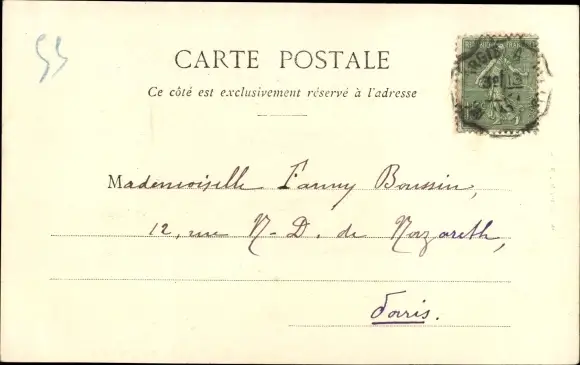 55
CARTE POSTALE
Ce côté est exclusivement réservé à l'adresse
Mademoiselle Fanny Boussin,
12, rue N-D. de Nazareth,
Paris.